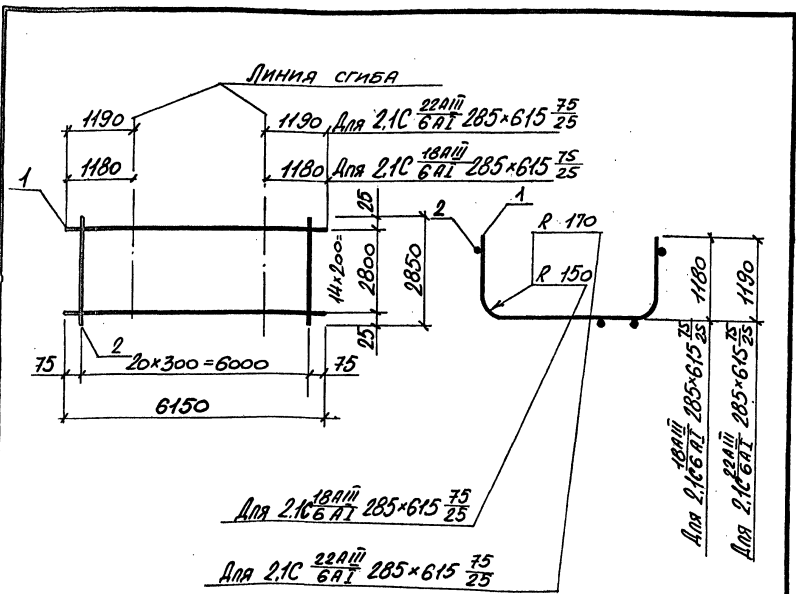 Линия сгиба
1190 1190 Для 2.1С 22АIII/6АI 285×615 75/25
1180 1180 Для 2.1С 18АIII/6АI 285×615 75/25
1
25
14×200=
2800
2850
25
2
75 20×300=6000 75
6150
2
1
R 170
R 150
1180
1190
Для 2.1С 18АIII/6АI 285×615 75/25
Для 2.1С 22АIII/6АI 285×615 75/25
Для 2.1С 18АIII/6АI 285×615 75/25
Для 2.1С 22АIII/6АI 285×615 75/25